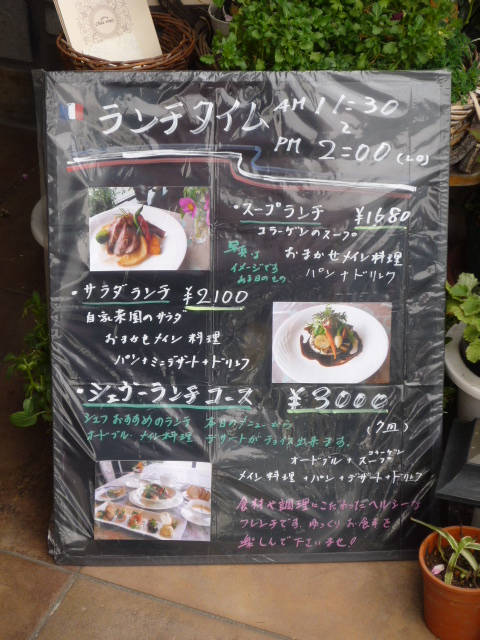 ランチタイム
AM 11:30
~
PM 2:00 (L.O)
・スープランチ ¥1680
コラーゲンのスープ
おまかせメイン料理
パン+ドリンク
写真は
イメージです
ある日のもの
・サラダランチ ¥2100
自家菜園のサラダ
おまかせメイン料理
パン+ミニデザート+ドリンク
・シェフーランチコース ¥3000
シェフおすすめのランチ 本日のメニューから
オードブル・メイン料理 デザートがチョイス出来ます。
オードブル+コラーゲンスープ
メイン料理+パン+デザート+ドリンク
食材や調理にこだわったヘルシーな
フレンチです。ゆっくりお食事を
楽しんで下さいませ!